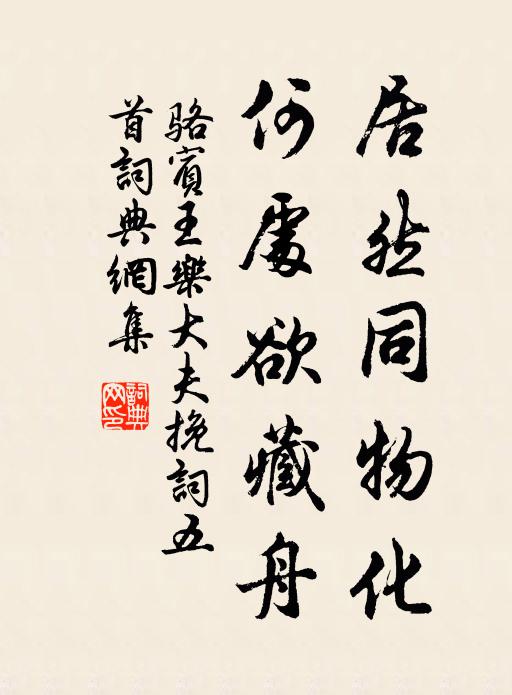 居然同物化
何處欲藏舟
駱賓王樂大夫挽詞五
首詞典網集
詞典網印